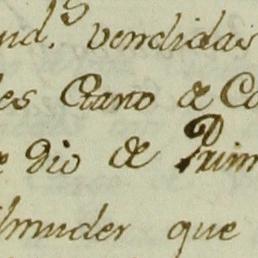 ud.s vendidas
es Ctano de Co
e Dio de Prim
lmuder que